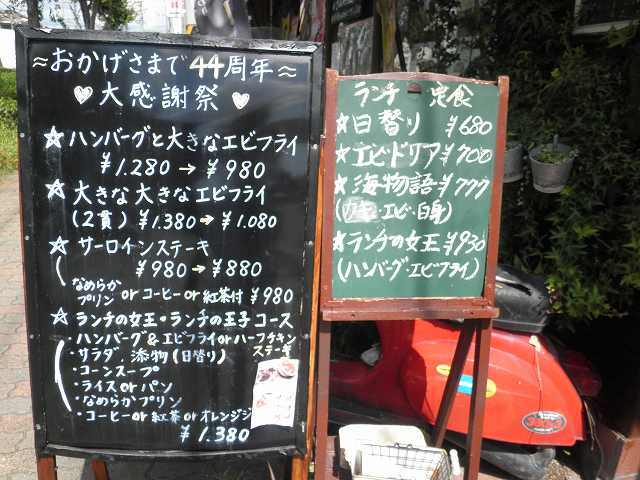 ≈おかげさまで44周年≈
♥大感謝祭♥
☆ハンバーグと大きなエビフライ
¥1.280→¥980
☆大きな大きなエビフライ
(2貫)¥1.380→¥1.080
☆サーロインステーキ
¥980→¥880
なめらか
プリン orコーヒーor紅茶付¥980
☆ランチの女王・ランチの王子コース
・ハンバーグ&エビフライorハーフチキン
ステーキ
・サラダ、添物(日替り)
・コーンスープ
・ライスorパン
・なめらかプリン
・コーヒーor紅茶orオレンジジ
¥1.380
ランチ 定食
★日替り ¥680
★エビドリア¥700
★海物語¥777
(カキ・エビ・白身)
★ランチの女王¥930
(ハンバーグ・エビフライ)